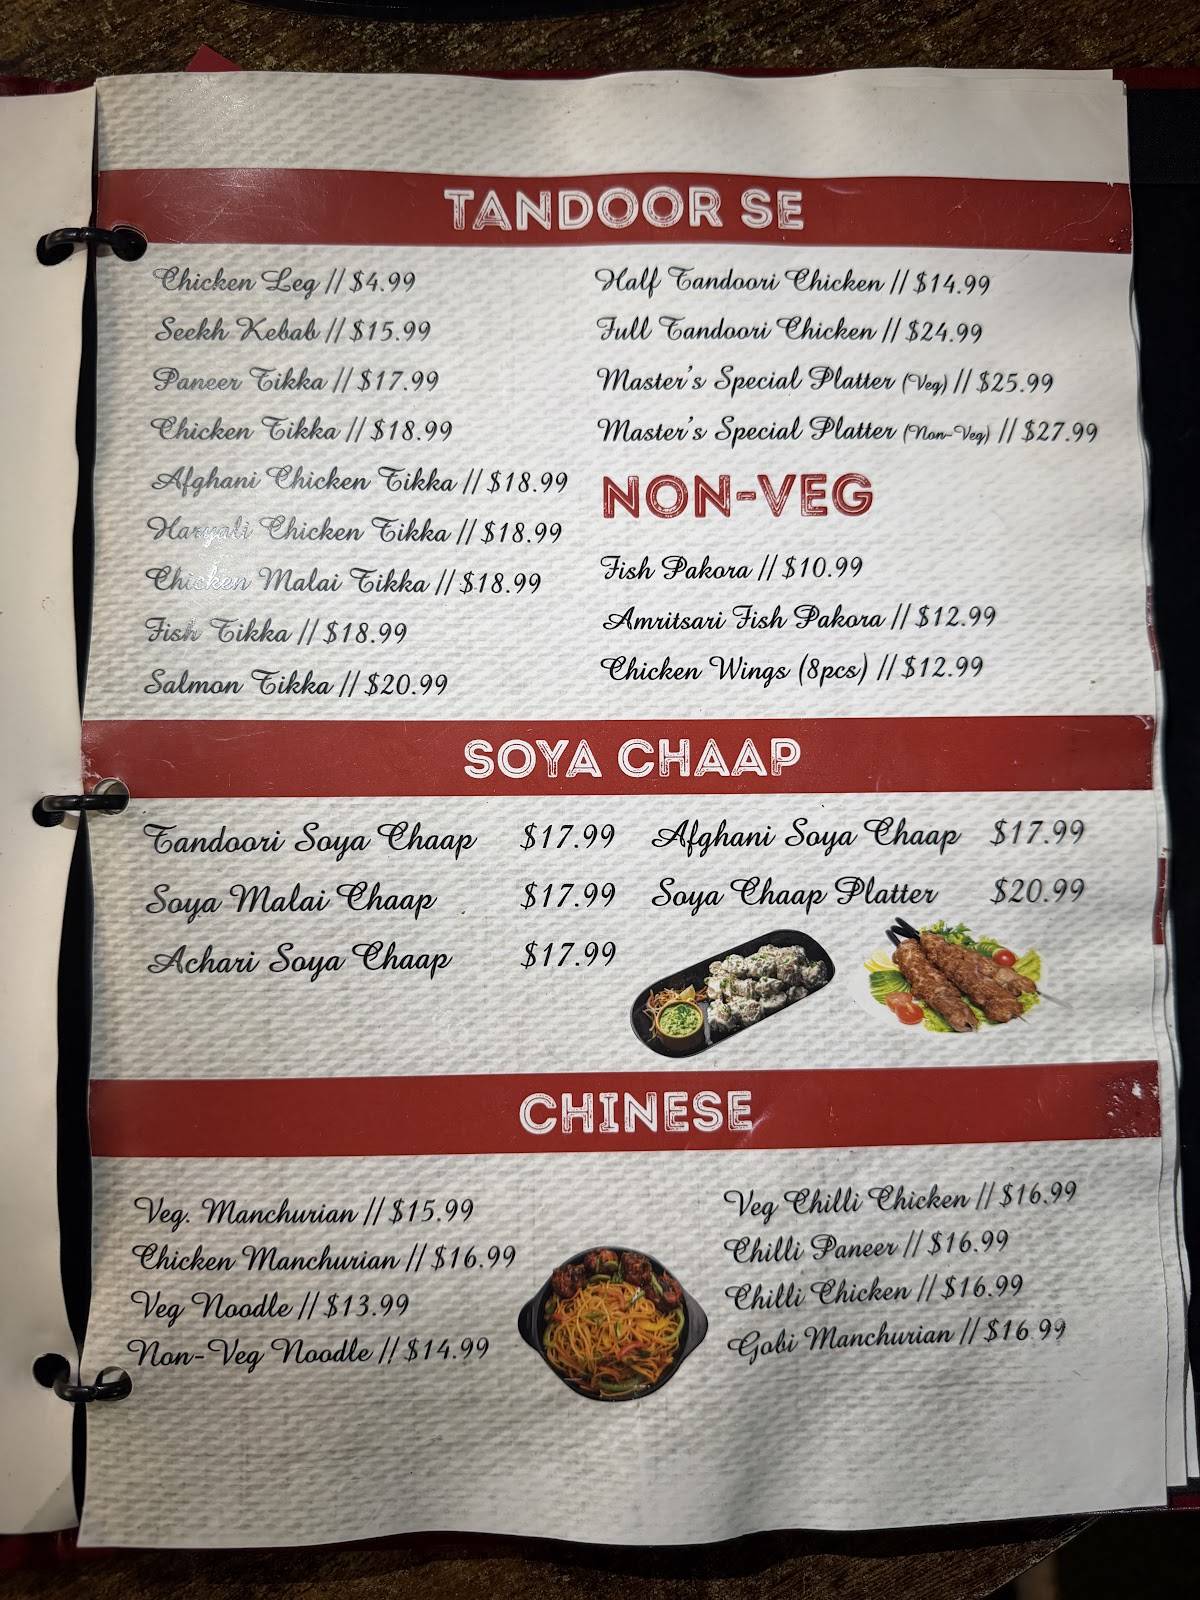 TANDOOR SE
Chicken Leg // $4.99
Seekh Kebab // $15.99
Paneer Tikka // $17.99
Chicken Tikka // $18.99
Afghani Chicken Tikka // $18.99
Haryali Chicken Tikka // $18.99
Chicken Malai Tikka // $18.99
Fish Tikka // $18.99
Salmon Tikka // $20.99
Half Tandoori Chicken // $14.99
Full Tandoori Chicken // $24.99
Master's Special Platter (Veg) // $25.99
Master's Special Platter (Non-Veg) // $27.99
NON-VEG
Fish Pakora // $10.99
Amritsari Fish Pakora // $12.99
Chicken Wings (8pcs) // $12.99
SOYA CHAAP
Tandoori Soya Chaap $17.99
Soya Malai Chaap $17.99
Achari Soya Chaap $17.99
Afghani Soya Chaap $17.99
Soya Chaap Platter $20.99
CHINESE
Veg. Manchurian // $15.99
Chicken Manchurian // $16.99
Veg Noodle // $13.99
Non-Veg Noodle // $14.99
Veg Chilli Chicken // $16.99
Chilli Paneer // $16.99
Chilli Chicken // $16.99
Gobi Manchurian // $16.99